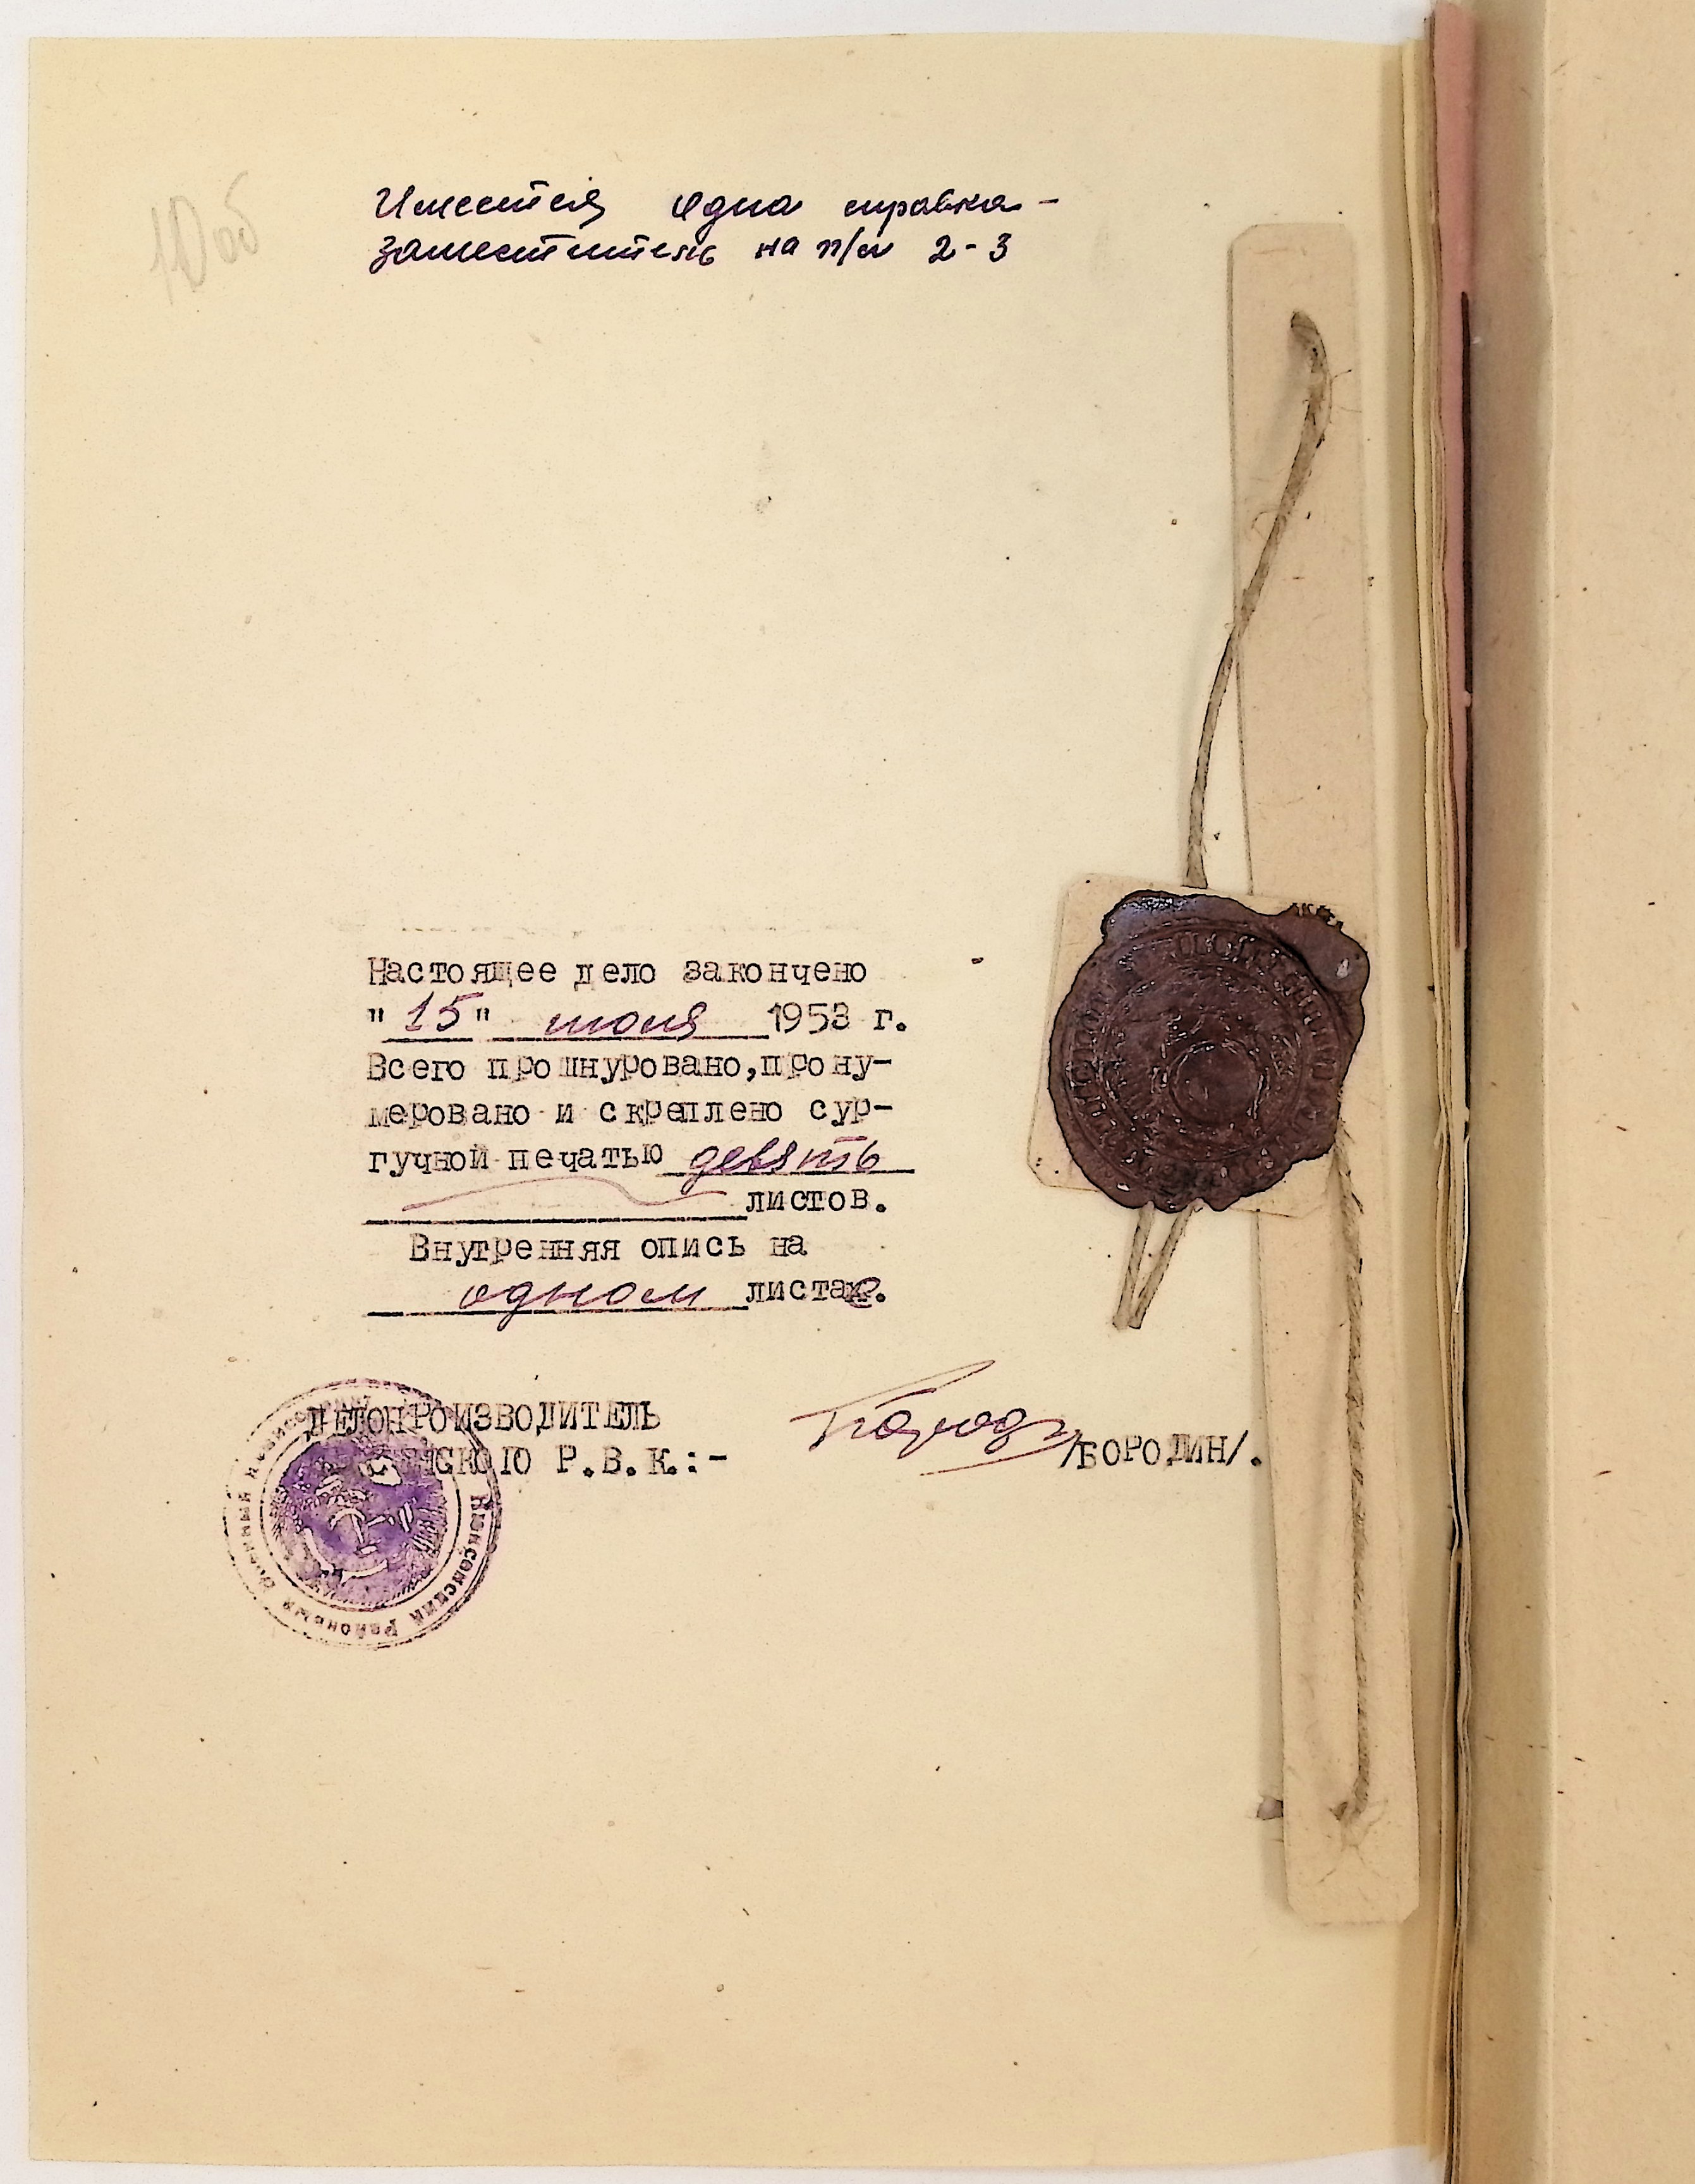 10об
Имеется одна справка-
заместитель на п/л 2-3
Настоящее дело закончено
"15" июля 1953 г.
Всего прошнуровано, прону-
меровано и скреплено сур-
гучной печатью девять
листов.
Внутренняя опись на
одном листе.
ДЕЛОПРОИЗВОДИТЕЛЬ
СКОГО Р.В.К.:-
/БОРОДИН/.
Районный Военный